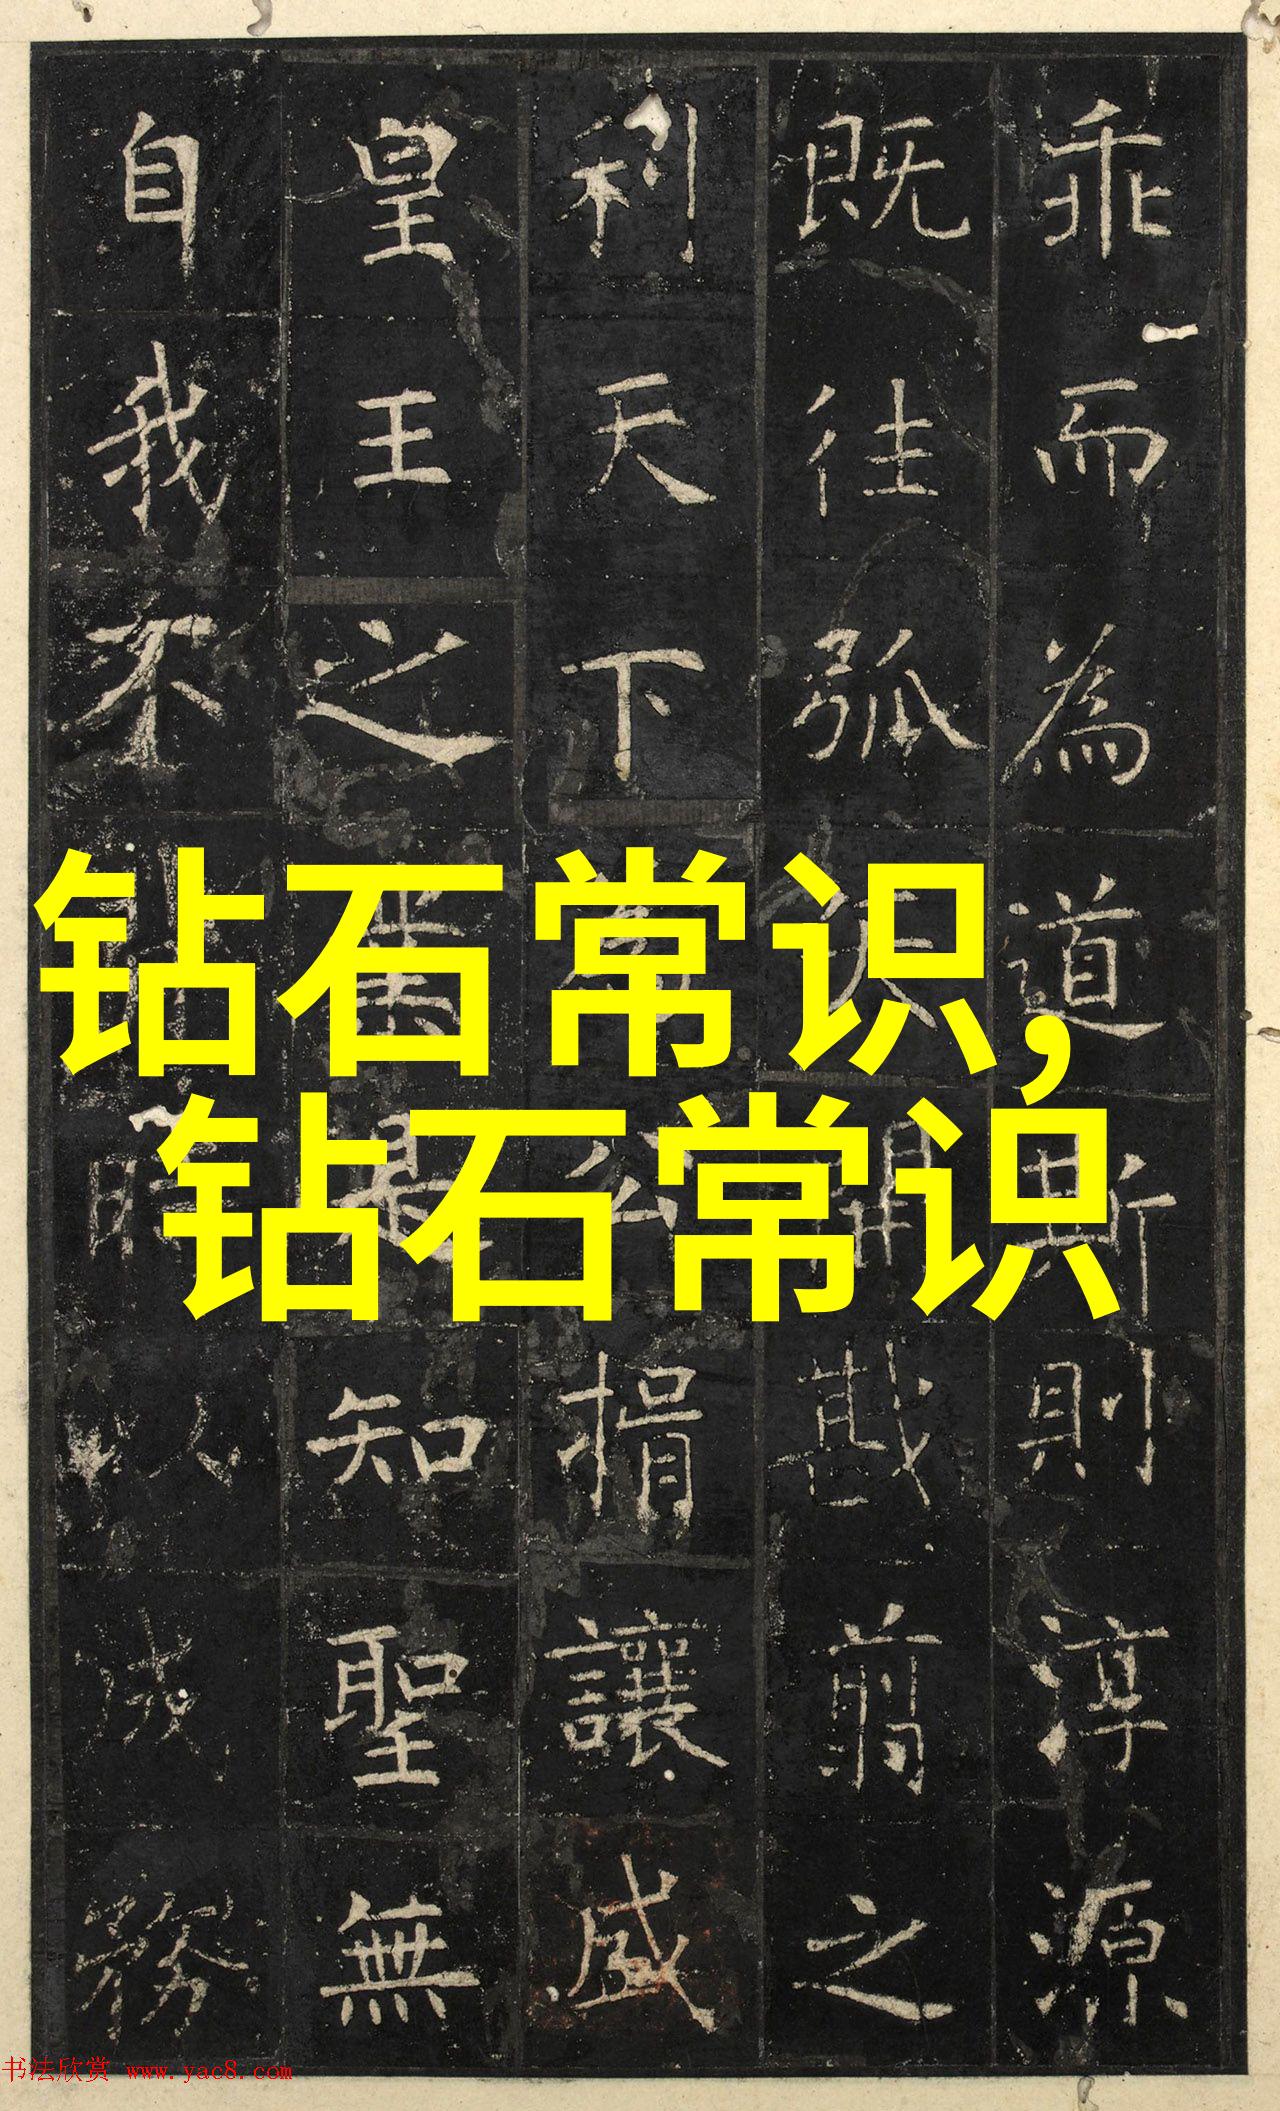 乖而為道斯則淳源
既往弧矢開戡翦之
利天下為公揖讓咸
皇王之
知聖無
自我不
以
務
钻石常识,
钻石常识
书法欣赏 www.yac8.com